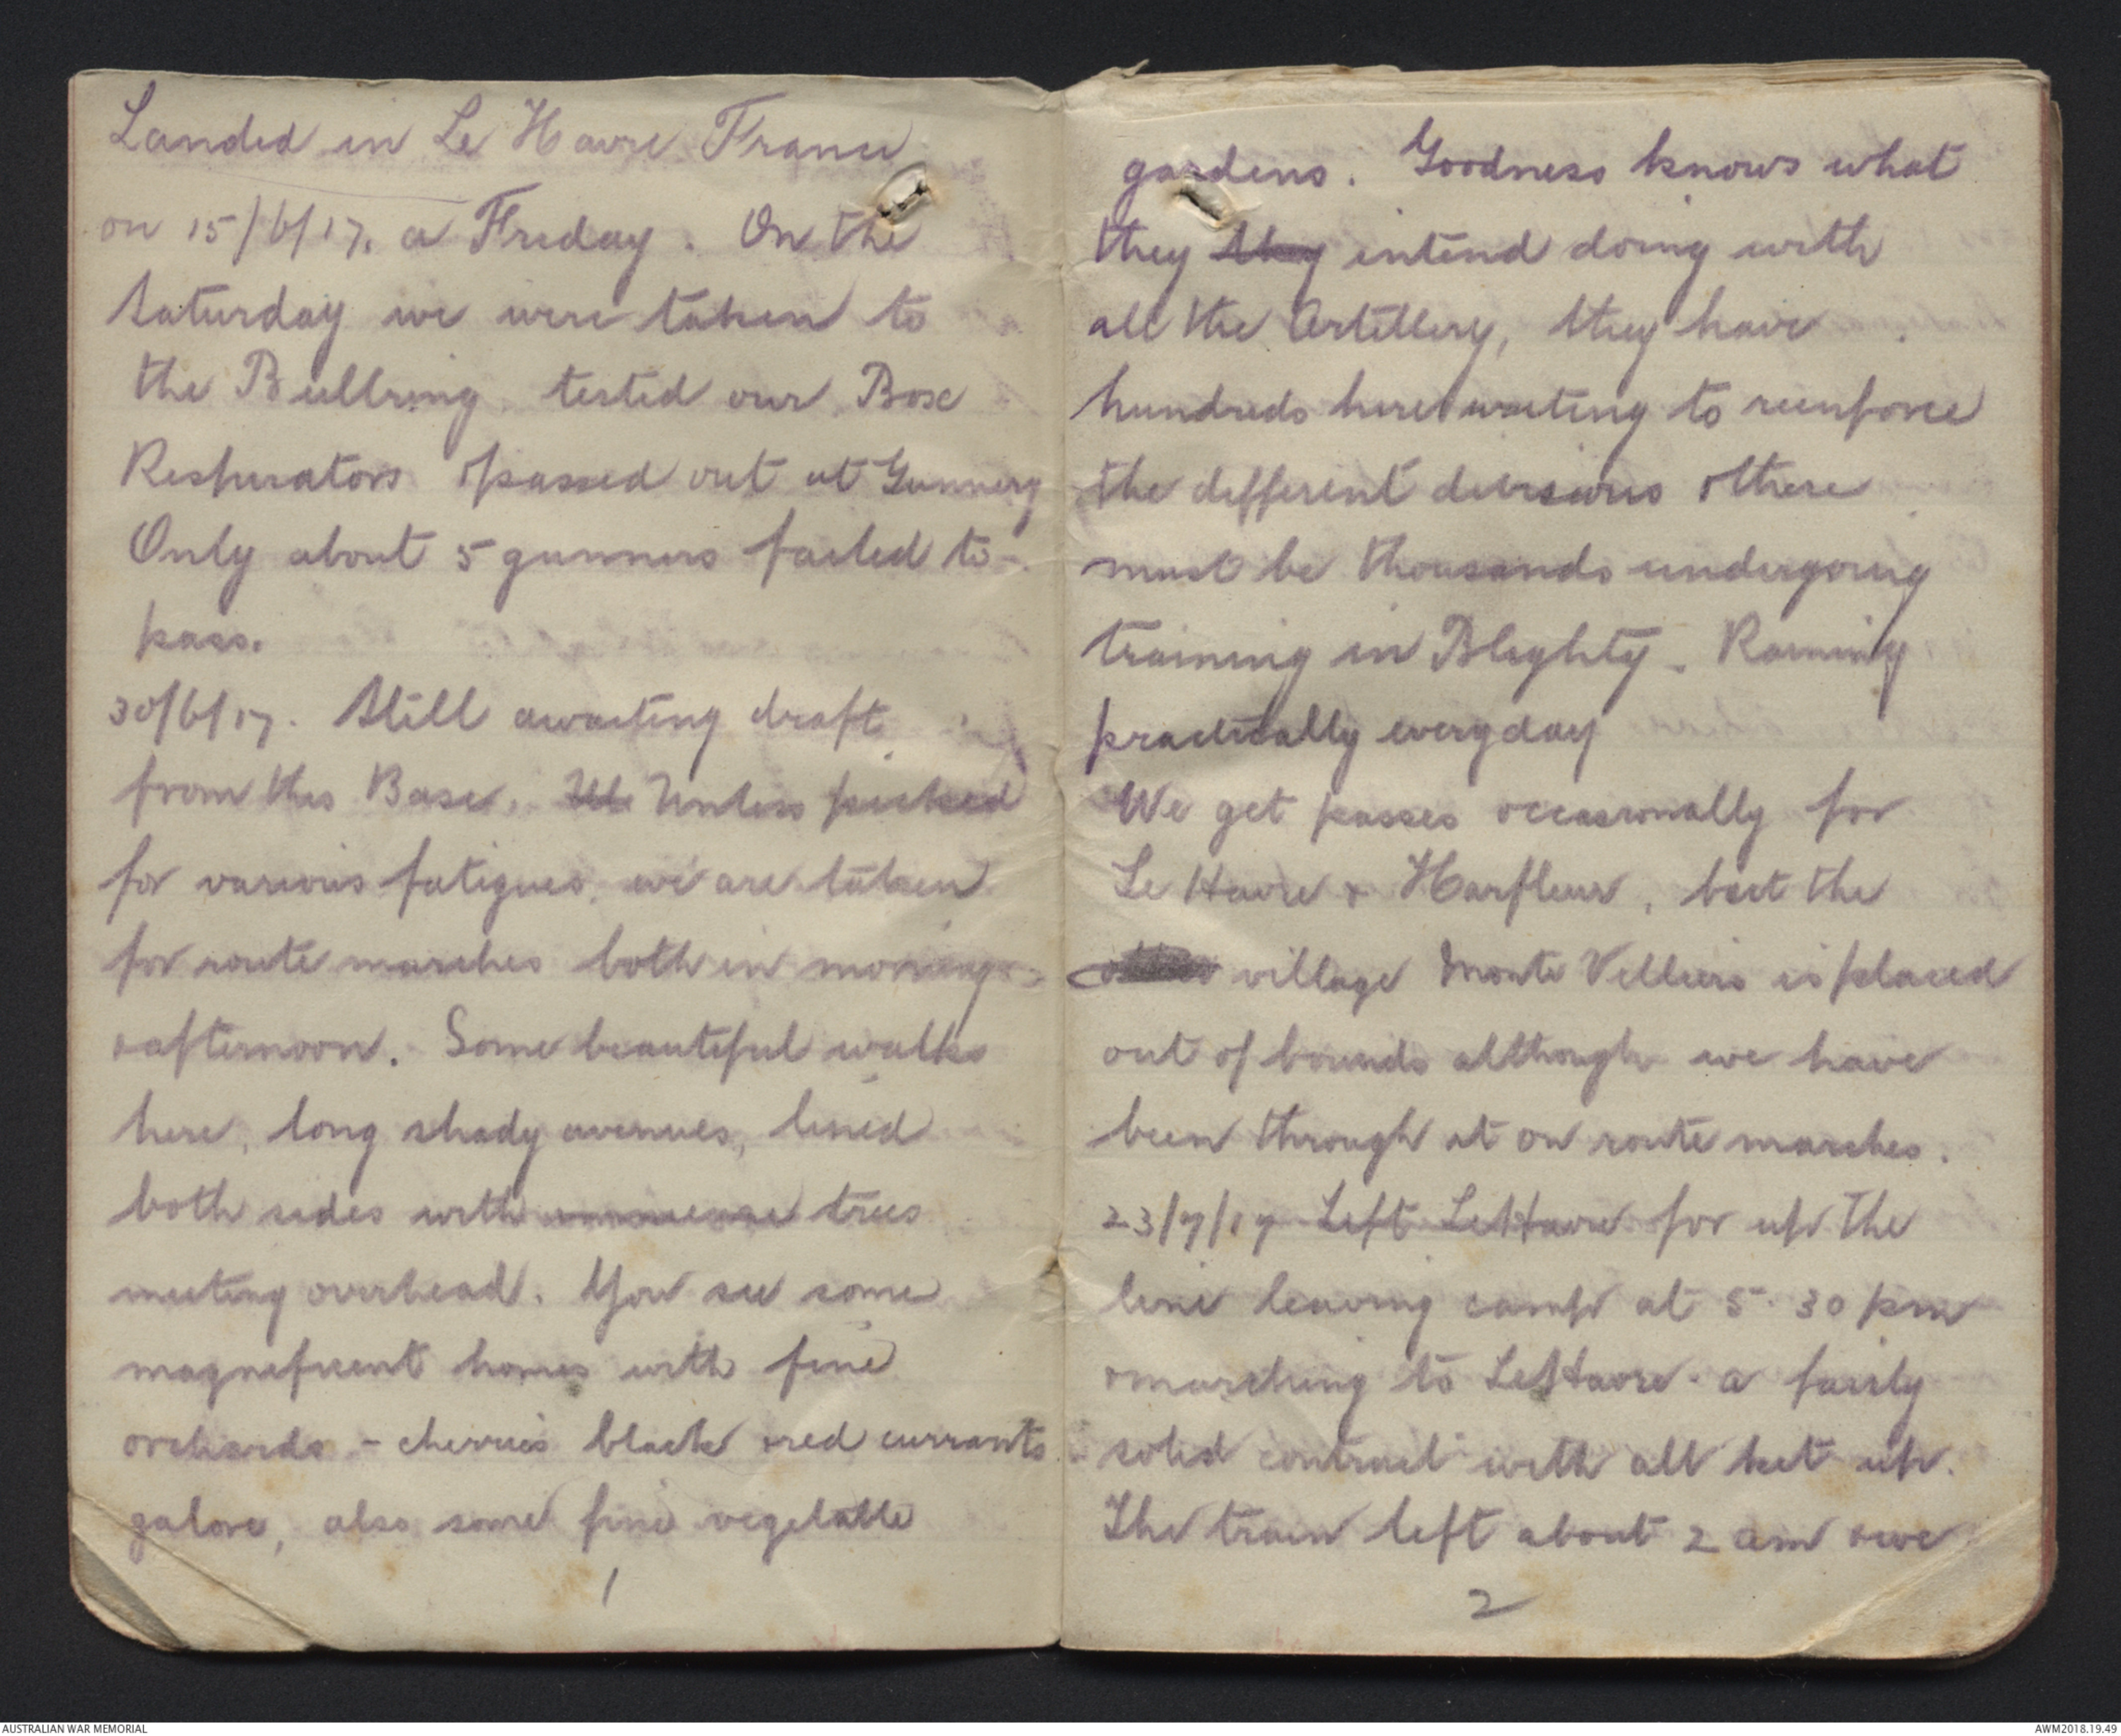 Landed in Le Havre France
on 15/6/17, a Friday. On the
Saturday we were taken to
the Bullring, tested our Box
Respirators & passed out at Gunnery
Only about 5 gunners failed to
pass.
30/6/17. Still awaiting draft
from this Base. Unless picked
for various fatigues, we are taken
for route marches both in morning
& afternoon. Some beautiful walks
here, long shady avenues, lined
both sides with immense trees
meeting overhead. You see some
magnificent homes with fine
orchards - cherries black & red currants
galore, also some fine vegetable
1
gardens. Goodness knows what
they they intend doing with
all the Artillery, they have
hundreds here waiting to reinforce
the different divisions & there
must be thousands undergoing
training in Blighty. Raining
practically everyday
We get passes occasionally for
Le Havre & Harfleur, but the
village Monte Velliers is placed
out of bounds although we have
been through it on route marches.
23/7/17 Left Le Havre for up the
line leaving camp at 5.30 pm
& marching to Le Havre. a fairly
solid contract with all kit up.
The train left about 2 am & we
2
AUSTRALIAN WAR MEMORIAL
AWM2018.19.49